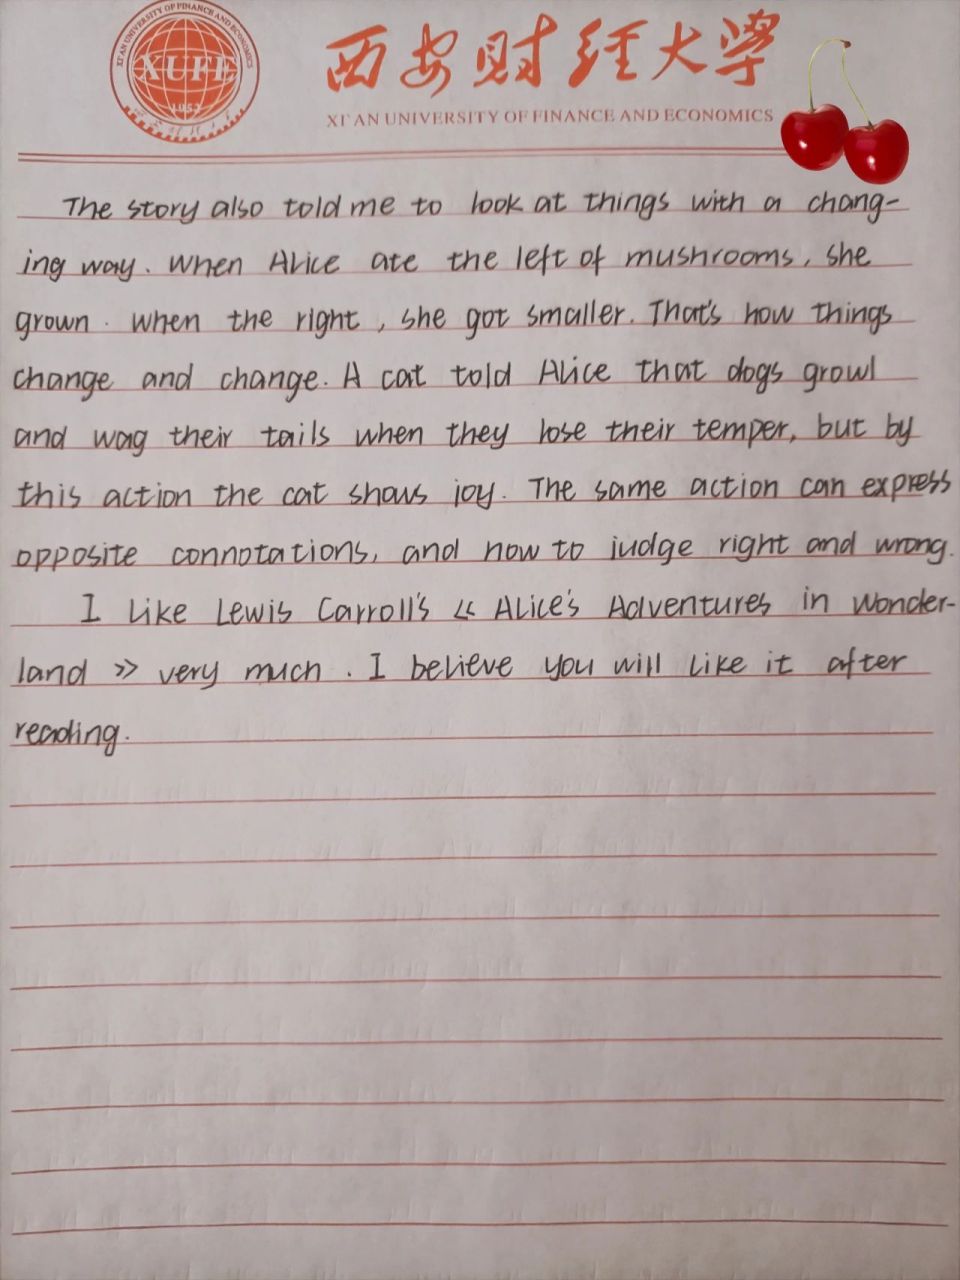 XI'AN UNIVERSITY OF FINANCE AND ECONOMICS
XUFE
1952
西安财经大学
XI'AN UNIVERSITY OF FINANCE AND ECONOMICS
The story also told me to look at things with a chang-
ing way. When Alice ate the left of mushrooms, she
grown. When the right, she got smaller. That's how things
change and change. A cat told Alice that dogs growl
and wag their tails when they lose their temper, but by
this action the cat shows joy. The same action can express
opposite connotations, and how to judge right and wrong.
I like Lewis Carroll's << Alice's Adventures in Wonder-
land >> very much. I believe you will like it after
reading.